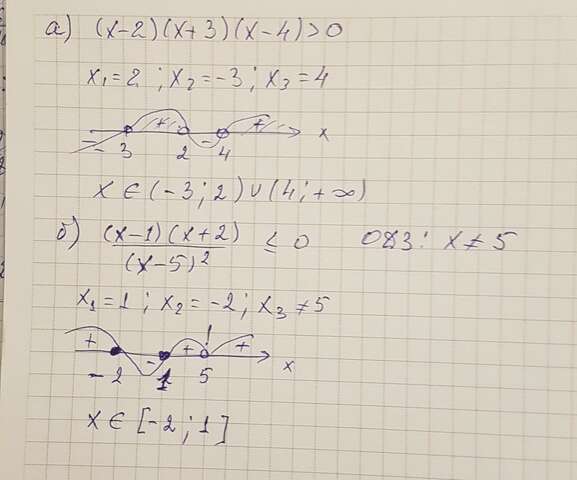 а) (x-2)(x+3)(x-4)>0
x₁=2; x₂=-3; x₃=4
- + - + x
-3 2 4
x ∈ (-3; 2) ∪ (4; +∞)
б) (x-1)(x+2)/(x-5)² ≤ 0 ОДЗ: x≠5
x₁=1; x₂=-2; x₃≠5
+ - + ! + x
-2 1 5
x ∈ [-2; 1]